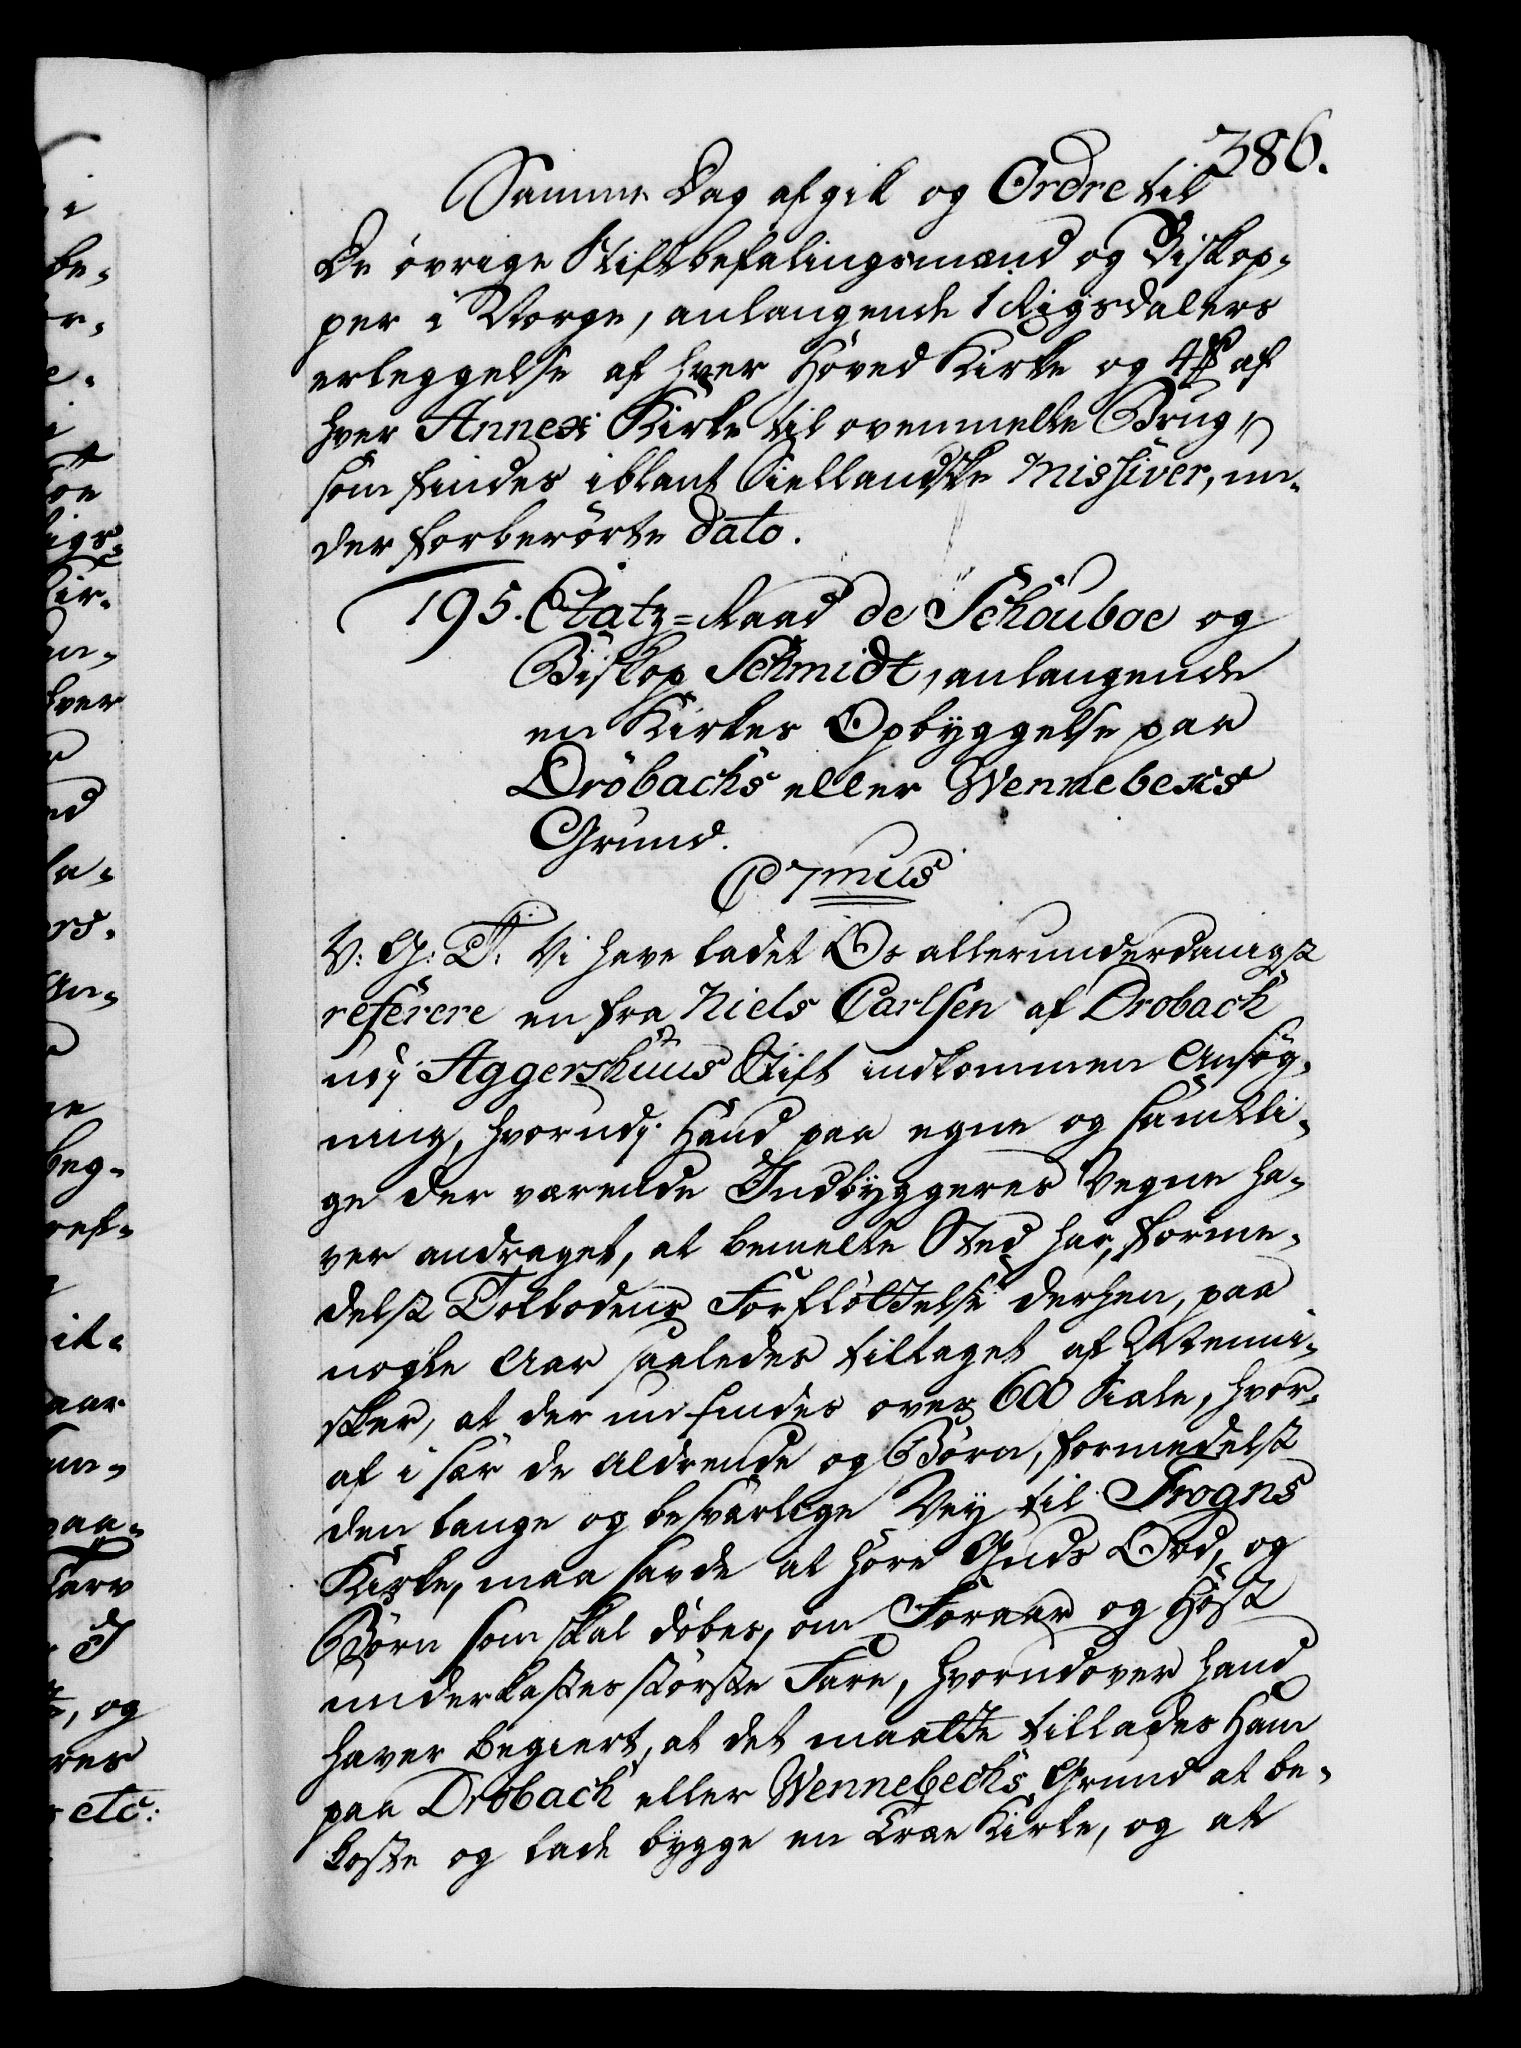 386.
Samme Dag afgik og Ordre til
De övrige Stiftbefalingsmænd og Biskop-
per i Norge, anlangende 1 Rigsdalers
erleggelse af hver Hoved Kirke og 4 af
hver Annex Kirke til ovenmelte Brug
som findes iblant Siellandske Missiver, un-
der forberörte dato.
195. Etatz=Raad de Schouboe og
Biskop Schmidt, anlangende
en Kirkes Opbyggelse paa
Dröbachs eller Wennebechs
Grund.
C 7mus
V: G: T: Vi have ladet Os allerunderdanigst
referere en fra Niels Carlsen af Drobach
udj Aggershuus Stift indkommen Ansög-
ning, hvorudj Hand paa egne og samtli-
ge der værende Indbyggeres Vegne ha-
ver andraget, at bemelte Sted har, forme-
delst Tolbodens Forflöttelse derhen, paa
nogle Aar saaledes tiltaget af Menni-
sker, at der nu findes over 600 Siæle, hvor-
af i sær de Aldrende og Börn, formedelst
den lange og besværlige Vey til Frogns
Kirke, maa savde at höre Guds Ord, og
Börn som skal döbes, om Foraar og Höst
underkastes störste Fare, hvorudover hand
haver begiert, at det maatte tillades Ham
paa Dröbach eller Wennebechs Grund at be-
koste og lade bygge en Træ Kirke, og at
be-
or-
e-
ligs-
Kir-
hver
nd
la-
ers-
An-
beg-
ref-
aar
paa-
Tarv
I
, og
res
etc: